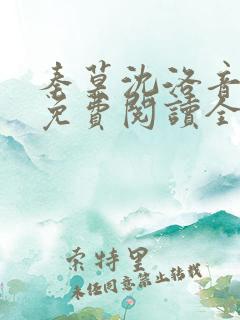 秦墓沈澄音
免費閱讀全
索特里
未经同意禁止转载